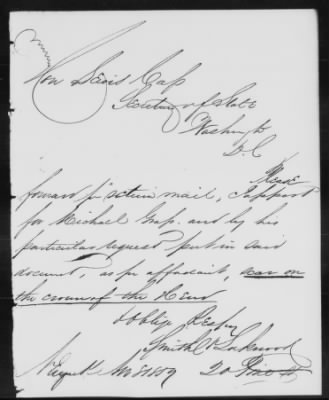 Hon Lewis Cass
Secretary of State
Washingt
D.C
Please
forward pr return mail, Passport
for Michael and by his
particular request put in said
document, as per affidavit, scar on
the crown of the Head
& oblige Respy
Smith &
20